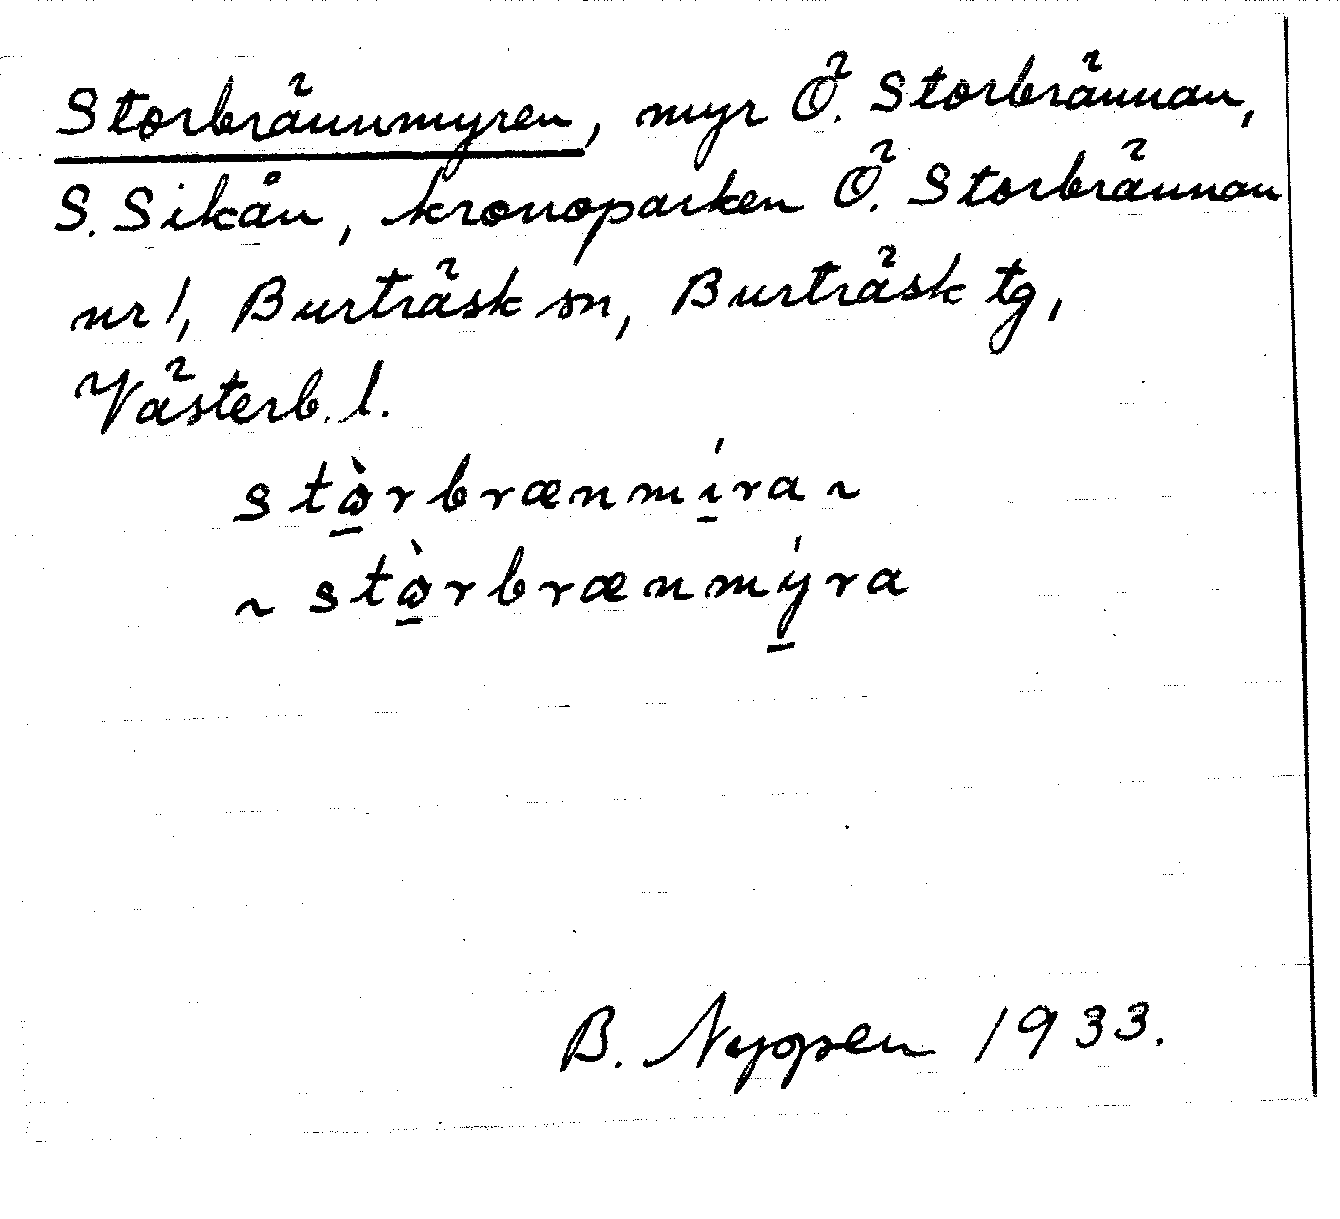 Storbrännmyren, myr Ö. Storbrännan,
S. Sikån, kronoparken Ö. Storbrännan
nr 1, Burträsk sn, Burträsk tg,
Västerb. l.
stò̱rbrænmí̱ra ~
~ stò̱rbrænmý̱ra
B. Nyppen 1933.